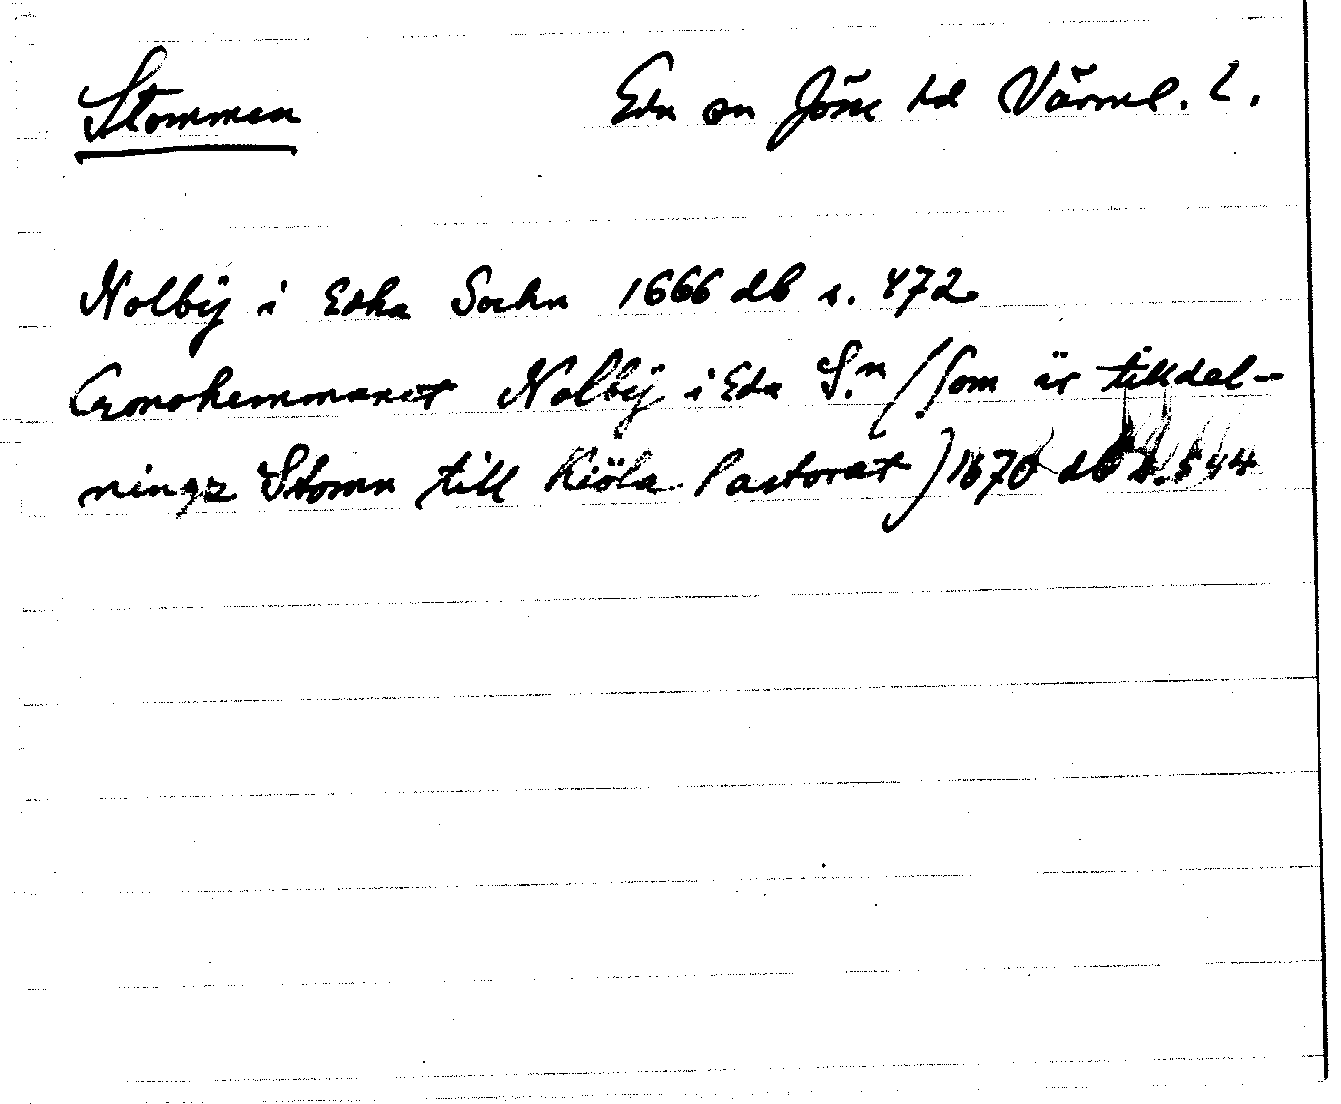 Stommen Eda sn Jösse hd Värml. L.
Nolbij i Edha Sochn 1666 db s. 472
Cronohemmanet Nolbij i Eda S.n (som är tilldel-
ningz Stomn till Kiöla Pastorat) 1670 db s. 544